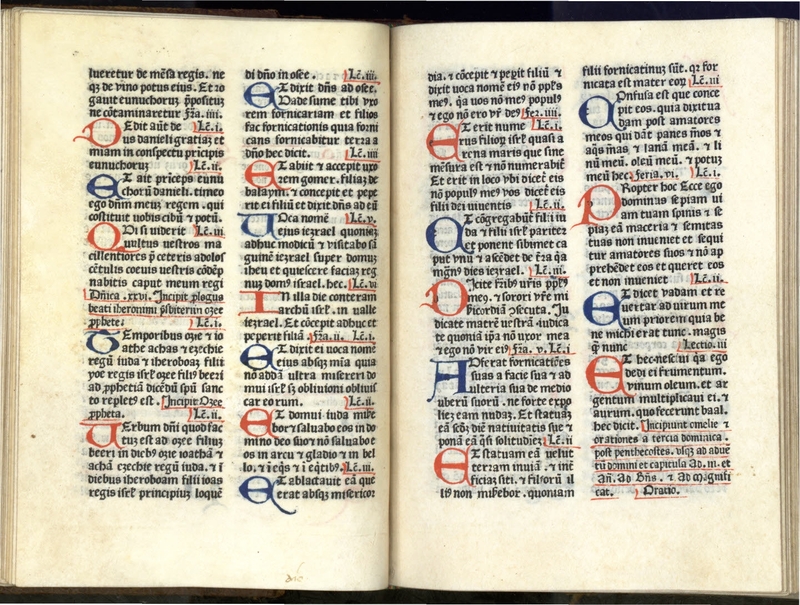 lueretur de mēsa regis. ne
qz de vino potus eius. Et ro
gauit eunuchoruz pposituz
ne cōtaminaretur fza. iiii.
DEdit aūt de Lc̄. i.
us danieli gratiaz et
miam in conspectu principis
eunuchoruz Lc̄. ii.
Et ait princeps eunu
choruȝ danieli. timeo
ego dn̄m meuz regem. qui
cōstituit uobis cibū et potū.
Qui si uiderit Lc̄. iii
uultus uestros ma
cillentiores p̄ ceteris adoles
cētulis coeuis vestris cōdēp
nabitis caput meum regi
Dn̄ica. xxvi. Incipit plogus
beati iheronimi p̄sbiteri in ozee
pphete: Lc̄. i.
Temporibus ozie et io
athe achas et ezechie
regū iuda et iheroboaz filii
yoe regis isrl̄ ozee filiꝰ beeri
ad pphetiā dicēdū spū sanc
to repletꝰ est. Incipit Ozee
ppheta. Lc̄. ii.
Uerbum dn̄i quod fac
tuz est ad ozee filiuz
beeri in diebꝰ ozie ioathā et
achā ezechie regū iuda. et ī
diebus iheroboam filii ioas
regis isrl̄ principiuz loquē
di dn̄o in osee. Lc̄. iii.
Et dixit dn̄s ad osee.
Uade sume tibi vxo
rem fornicariam et filios
fac fornicationis quia forni
cans fornicabitur terra a
dn̄o hec dicit. Lc̄. iiii
Et abiit et accepit uxo
rem gomer. filiaz de
balaym. et concepit et pepe
rit ei filiū et dixit dn̄s ad eū
Uoca nomē Lc̄. v.
eius iezrael quoniaz
adhuc modicū et visitabo sā
guinē iezrael super domuz
iheu et quiescere faciaz reg
nuz domꝰ israel. hec. Lc̄. vi
In illa die conteram
archū isrl̄. in ualle
iezrael. Et cōcepit adhuc et
peperit filiā. fza. ii. Lc̄. i.
Et dixit ei uoca nomē
eius absqz mīa quia
nō addā ultra misereri do
mui isrl̄ sz obliuioni obliuis
car eorum. Lc̄. ii.
Et domui iuda mise
bor et saluabo eos in do
mino deo suo et nō saluabo e
os in arcu et gladio et in bel
lo. et ī eqs et ī eqtibꝰ. Lc̄. iii.
Et ablactauit eā que
erat absqz misericor
dia. et cōcepit et pepit filiū et
dixit uoca nomē eiꝰ nō ppl̄s
meꝰ. qa uos nō meꝰ populꝰ
et ego nō ero vr̄ ds fer. iiii.
Et erit nume Lc̄. i.
rus filioꝝ isrl̄ quasi a
rena maris que sine
mēsura est et nō numerabit̄
Et erit in loco vbi dicet̄ eis
nō populꝰ meꝰ vos dicet̄ eis
filii dei uiuentis Lc̄. ii.
Et cōgregabūt̄ filii iu
da et filii isrl̄ paritez
et ponent sibimet ca
put vnū et ascēdēt de t̄ra qa
magnꝰ dies iezrael. Lc̄. iii.
Dicite fr̄ibꝰ uris ppls
meꝰ. et sorori vr̄e mi
sericordiā ꝯsecuta. Iu
dicate matrē uestrā iudica
te quonia ipa nō uxor mea
et ego nō vir eiꝰ fza. v. Lc̄. i
Auferat fornicatiōes
suas a facie sua et ad
ulteria sua de medio
uberū suorū. ne forte expo
liez eam nudaz. Et statuaz
eā scdm̄ diē natiuitatis sue et
ponā eā qsi solitudiez Lc̄. ii
Et statuam eā uelut
terram inuiā. et int̄
ficiaz siti. et filioru il
lius non misebor. quoniam
filii fornicationuz sūt. qz for
nicata est mater eoꝝ Lc̄. iii
Confusa est que conce
pit eos. quia dixit ua
dam post amatores
meos qui dāt panes m̄os et
aqs m̄as et lanā meā. et li
nū meū. oleū meū. et potuz
meū hec. feria. vi. Lc̄. i.
Propter hoc Ecce ego
Dominus sepiam ui
am tuam spinis et se
piaz eā maceria et semitas
tuas non inueniet et sequi
tur amatores suos et nō ap
prehēdet eos et queret eos
et non inueniet Lc̄. ii.
Et dicet vadam et re
uertar ad uirum me
um priorem quia be
ne michi erat tunc. magis
q̄ nunc Lectio. iii
Et hec nesciui qa ego
dedi ei frumentum.
vinum oleum. et ar
gentum multiplicaui ei. et
aurum. quo fecerunt baal.
hec dicit. Incipiunt omelie et
orationes a tercia dominica.
post penthecostes. vsqz ad aduē
tū domini et capitula Ad. m. et
Añ. ad Bn̄s. et Ad magnifi
cat. Oratio.